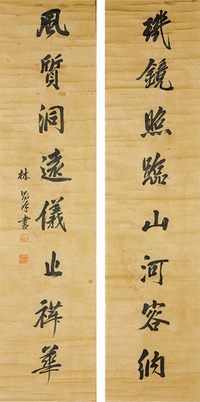 璣鏡照臨山河容納
風質洞遠儀止祥華
林則徐書